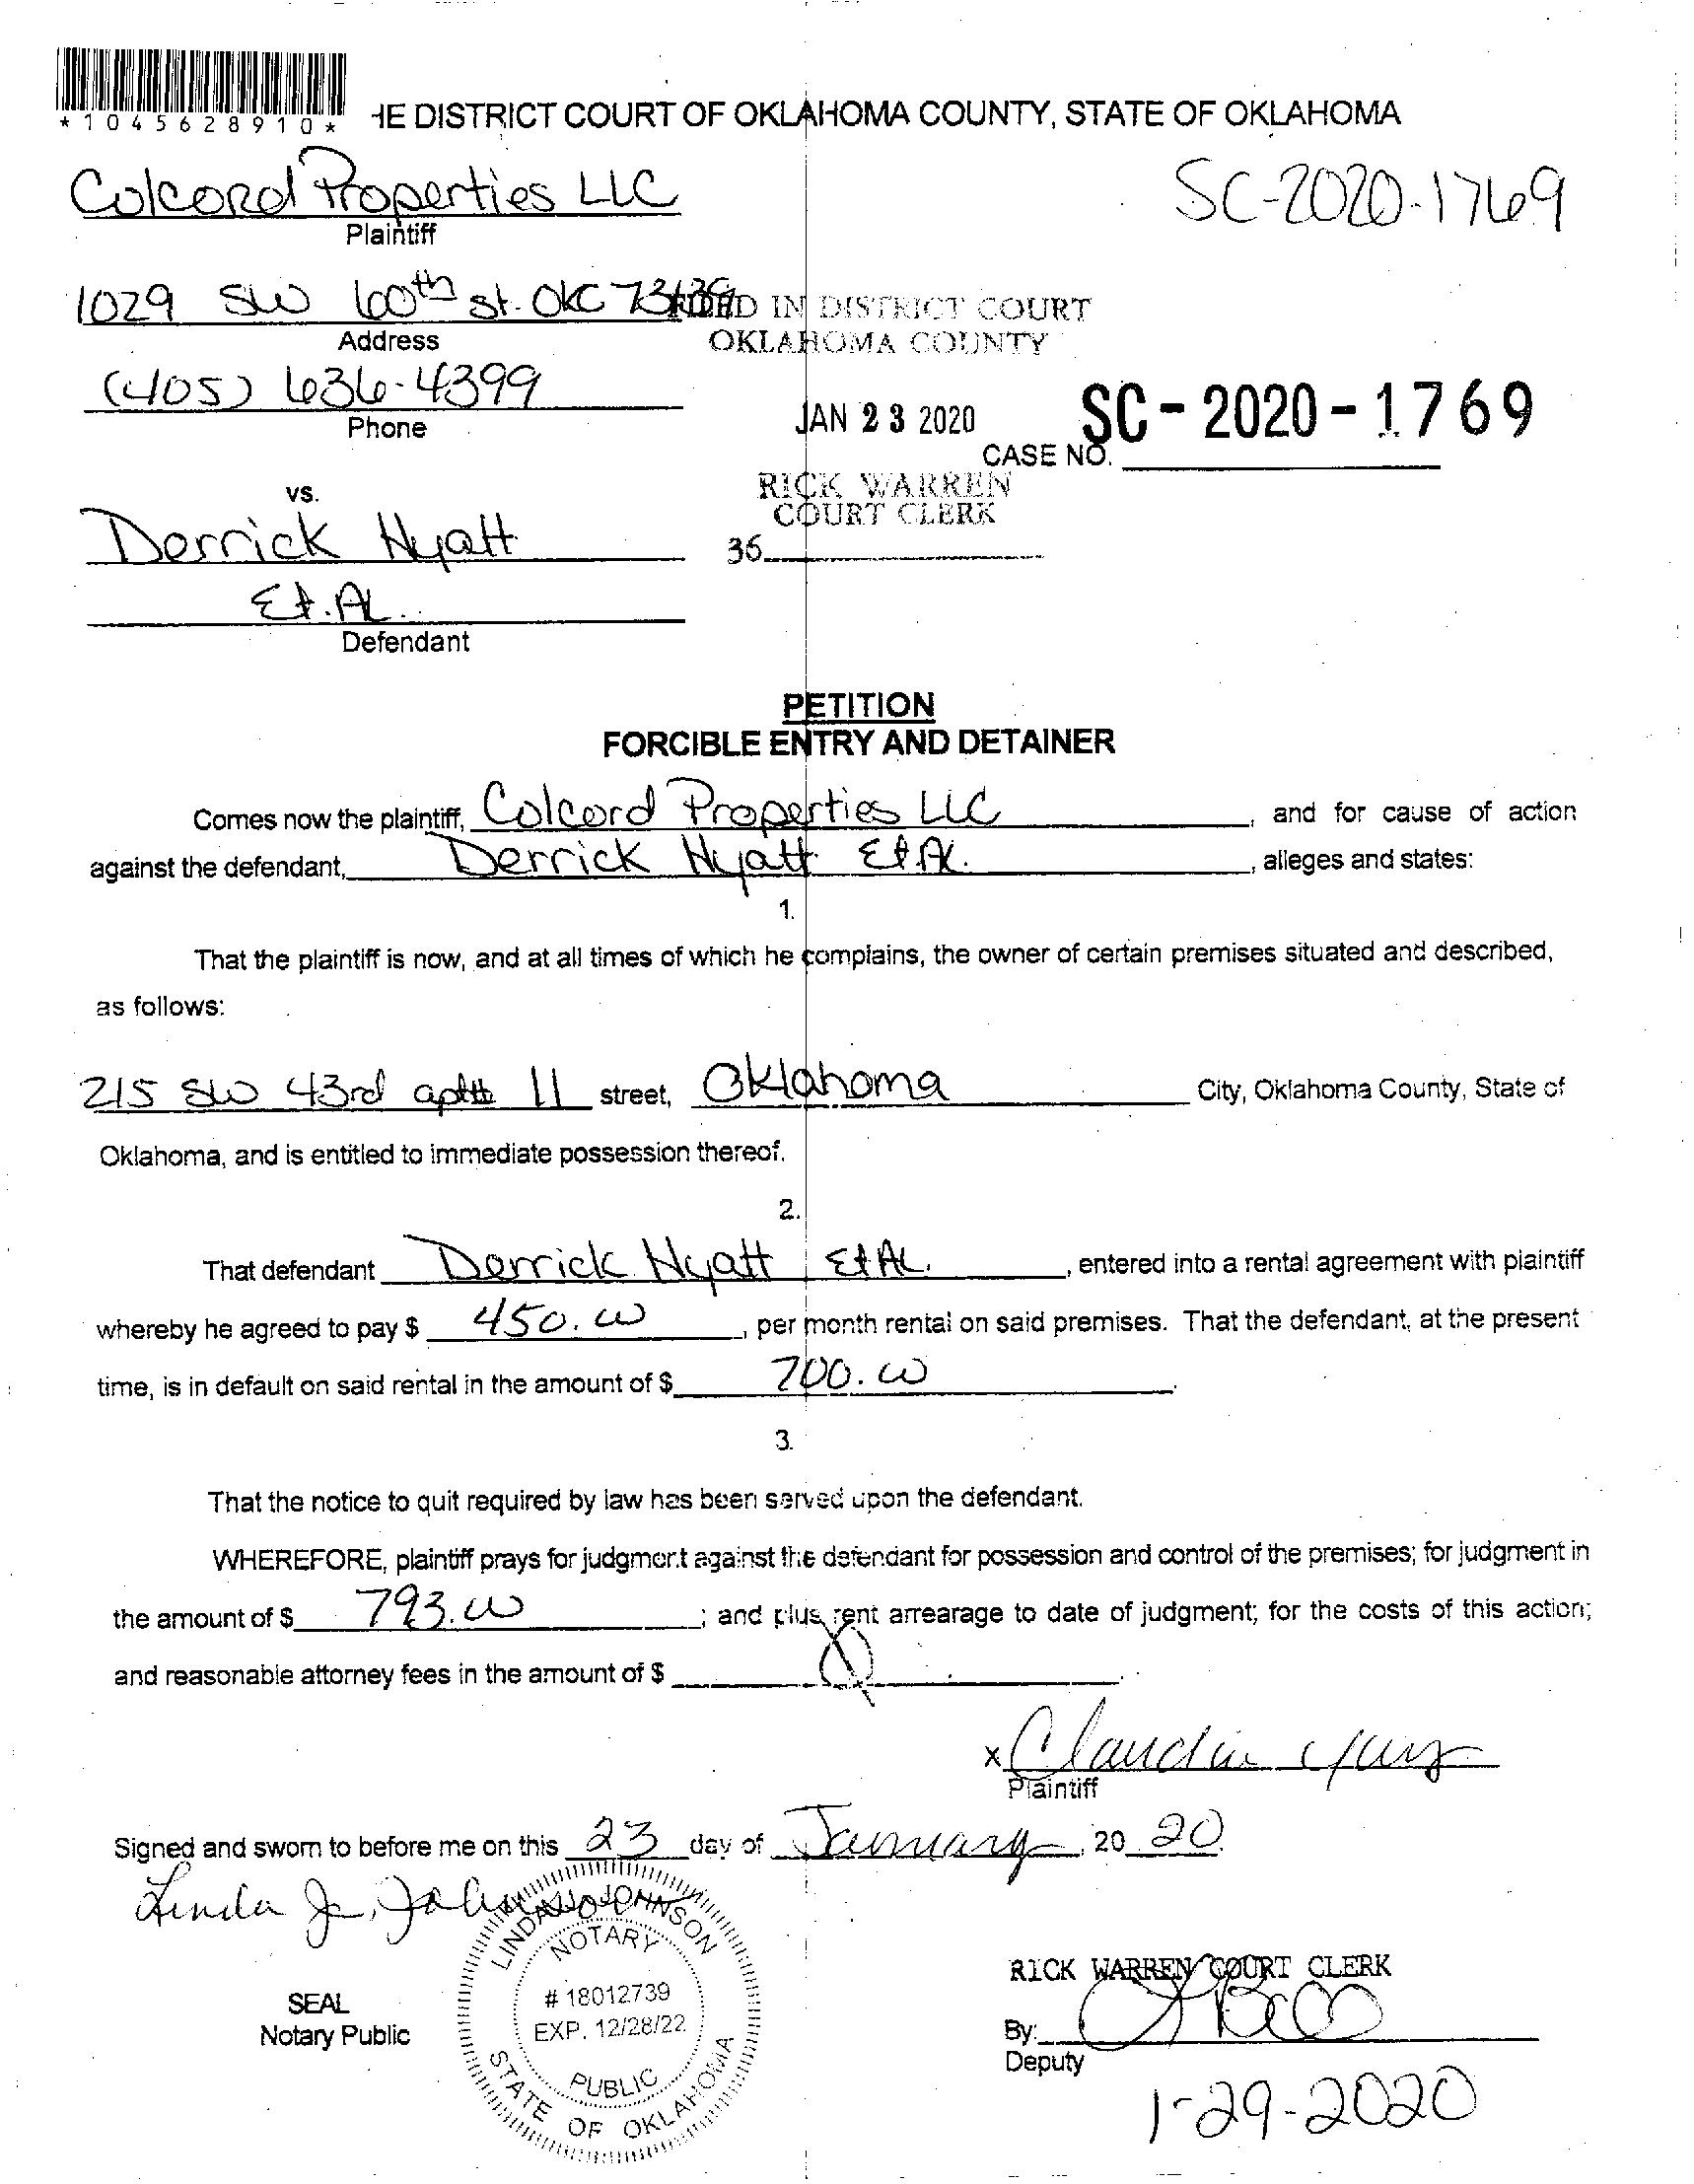 *1045628910*
HE DISTRICT COURT OF OKLAHOMA COUNTY, STATE OF OKLAHOMA
Colcord Properties LLC
SC-2020-1769
Plaintiff
1029 SW 60th st. OKC 73139
FILED IN DISTRICT COURT
Address
OKLAHOMA COUNTY
(405) 636-4399
Phone
JAN 23 2020
SC-2020-1769
CASE NO.
vs.
RICK WARREN
COURT CLERK
Derrick Hyatt
36
Et. AL.
Defendant
PETITION
FORCIBLE ENTRY AND DETAINER
Comes now the plaintiff, Colcord Properties LLC, and for cause of action
against the defendant, Derrick Hyatt Et AL., alleges and states:
1.
That the plaintiff is now, and at all times of which he complains, the owner of certain premises situated and described,
as follows:
215 SW 43rd apt# 11 street, Oklahoma City, Oklahoma County, State of
Oklahoma, and is entitled to immediate possession thereof.
2.
That defendant Derrick Hyatt Et AL., entered into a rental agreement with plaintiff
whereby he agreed to pay $ 450.00, per month rental on said premises. That the defendant, at the present
time, is in default on said rental in the amount of $ 700.00.
3.
That the notice to quit required by law has been served upon the defendant.
WHEREFORE, plaintiff prays for judgment against the defendant for possession and control of the premises; for judgment in
the amount of $ 793.00; and plus rent arrearage to date of judgment; for the costs of this action;
and reasonable attorney fees in the amount of $
x Claudia
Plaintiff
Signed and sworn to before me on this 23 day of January, 20 20.
Linda Jo Johnson
LINDA JO JOHNSON
NOTARY
# 18012739
EXP. 12/28/22
PUBLIC
STATE OF OKLAHOMA
SEAL
Notary Public
RICK WARREN COURT CLERK
By:
Deputy
1-29-2020